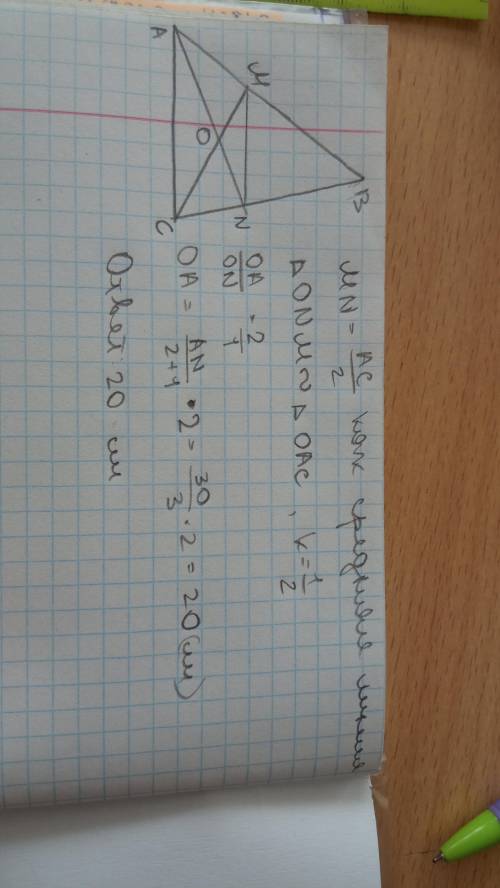 A
M
B
O
C
N
MN = AC/2 как средняя линия
△ONM ~ △OAC, k = 1/2
OA/ON = 2/1
OA = AN/(2+1) • 2 = 30/3 • 2 = 20 (см)
Ответ 20 см